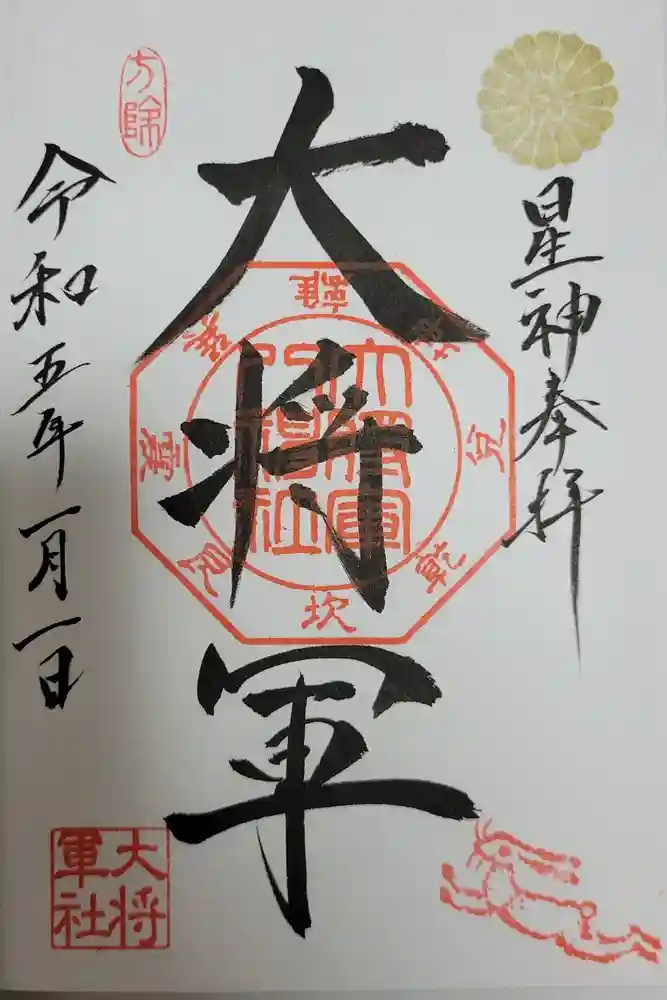 星神奉拝
大将軍
方除
令和五年一月一日
兌
乾
坎
艮
震
巽
離
坤
大将軍社